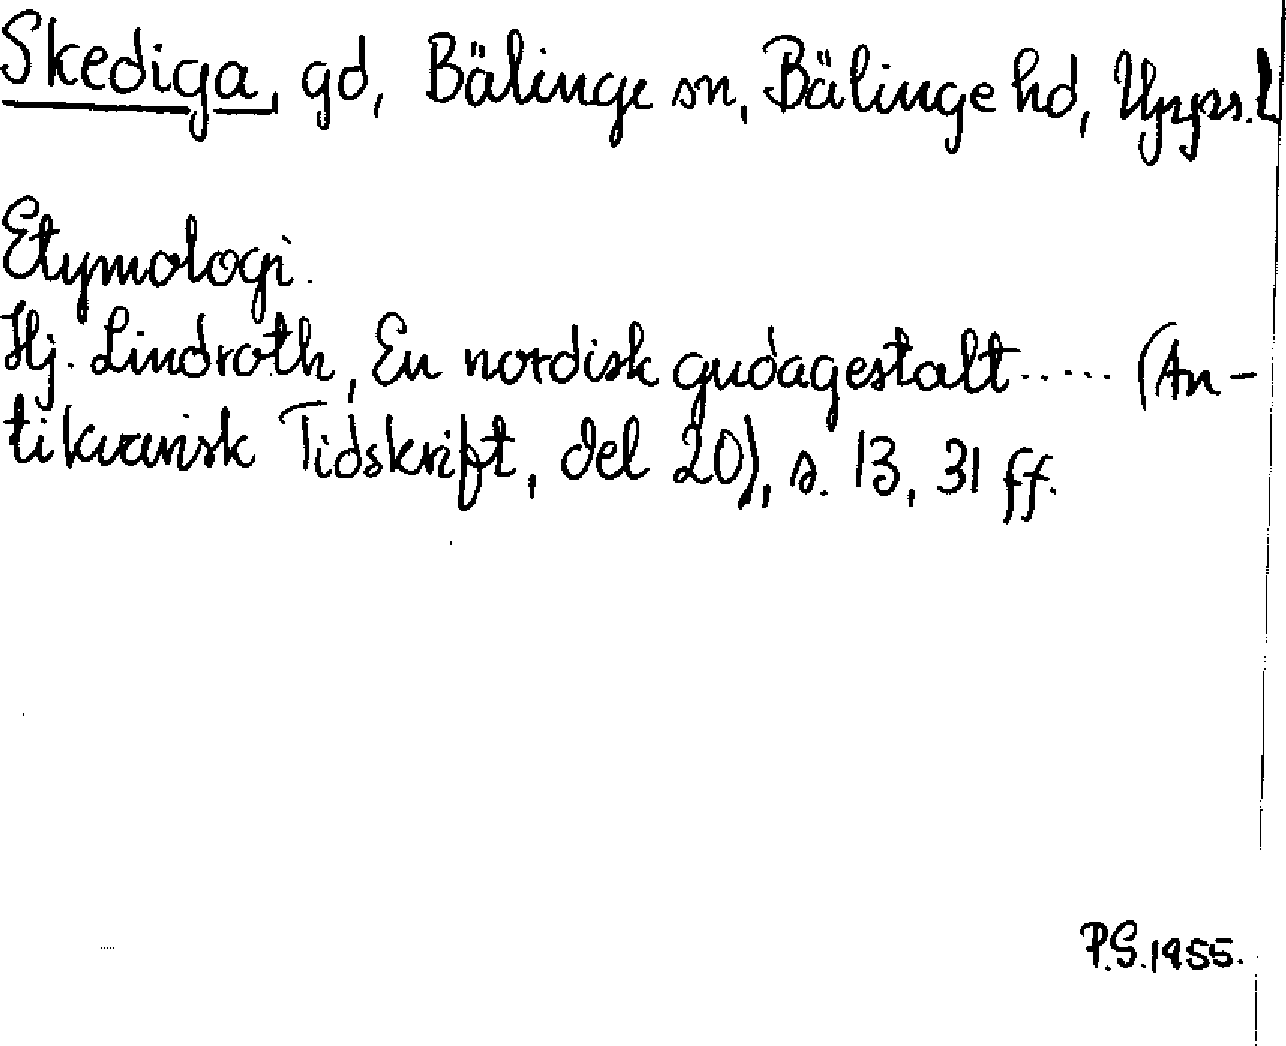 Skediga, gd, Bälinge sn, Bälinge hd, Upps. l
Etymologi.
Hj. Lindroth, En nordisk gudagestalt ..... (An-
tikvarisk Tidskrift, del 20), s. 13, 31 ff.
P.S. 1955.